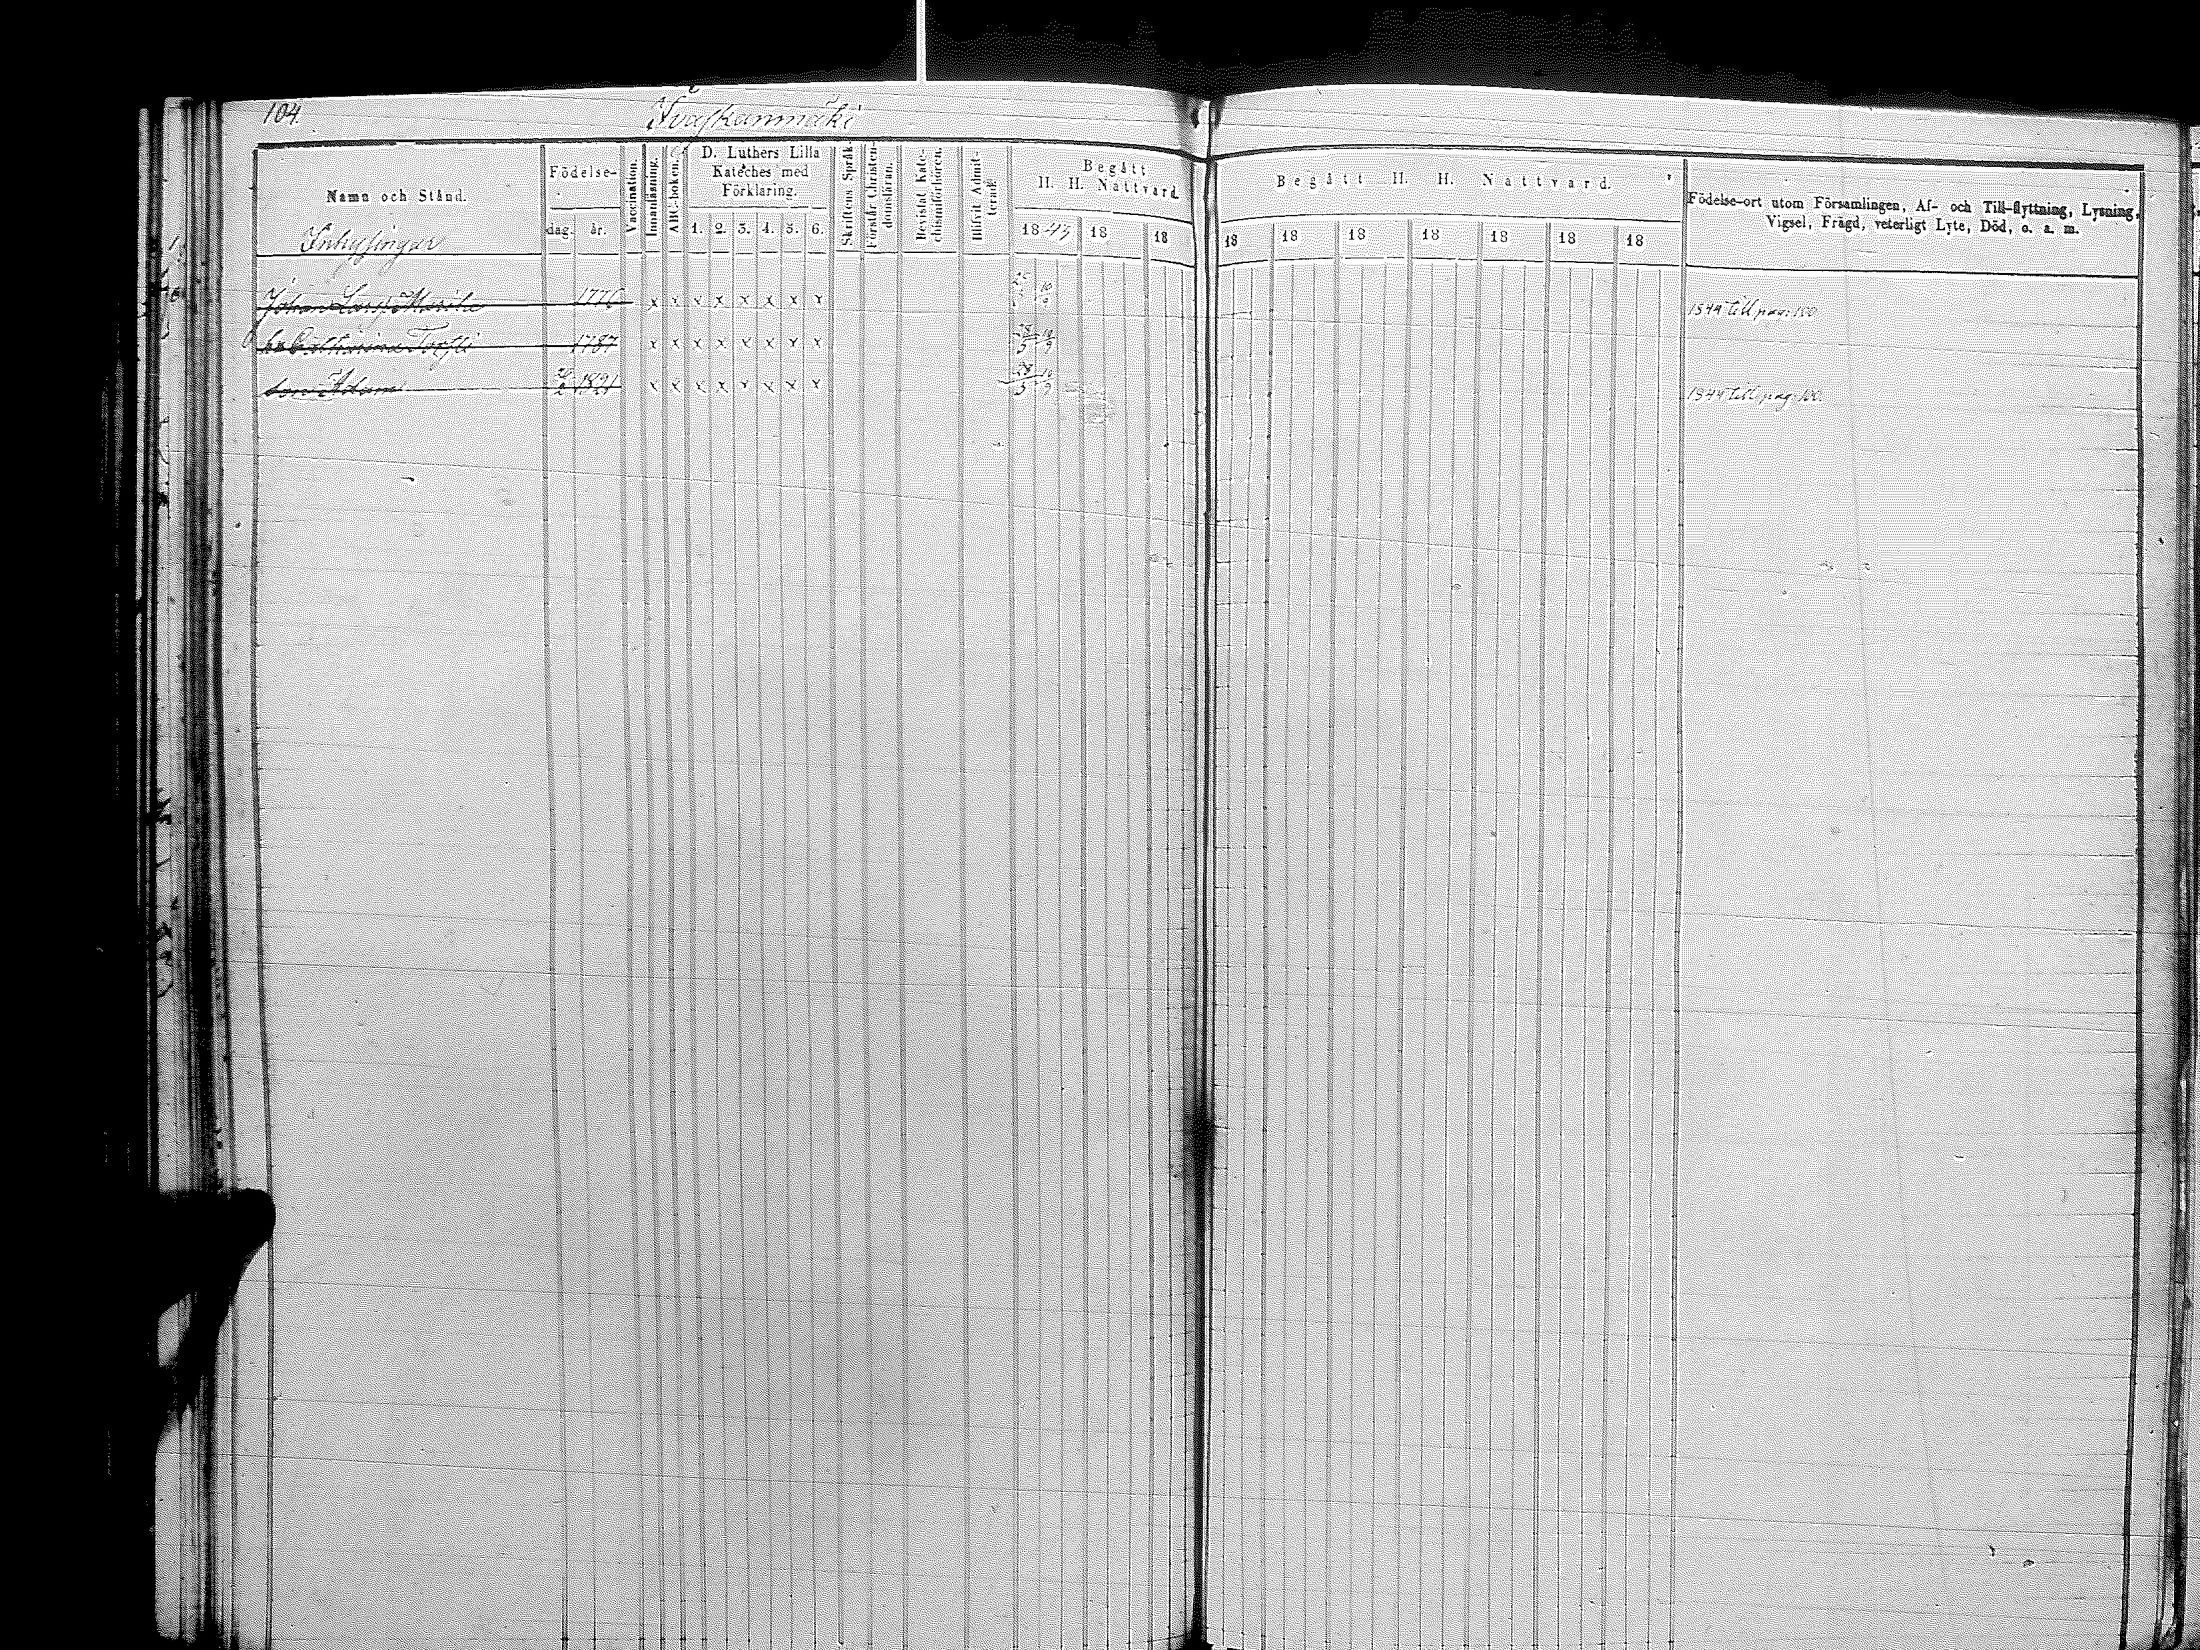 104.
Ivaskanmäki
Namn och Stånd.
Födelse-
dag. år.
Vaccination.
Innanläsning.
ABC-boken.
D. Luthers Lilla
Kateches med
Förklaring.
1. 2. 3. 4. 5. 6.
Skriftens Språk.
Förstår Christen-
domsläran.
Bevistat Kate-
chismiförhören.
Blifvit Admit-
terad
Begått
H. H. Nattvard.
18 43 18 18
Begått H. H. Nattvard.
18 18 18 18 18 18 18
Födelse-ort utom Församlingen, Af- och Till-flyttning, Lysning,
Vigsel, Frägd, veterligt Lyte, Död, o. s. m.
Inhysingar
Johan 1776 x x x x x x x x 1844 till pag: 100
h: Catharina 1787 x x x x x x x x 28/5 10/9
son Adam 1821 x x x x x x x x 28/5 10/9 1844 till pag: 100.